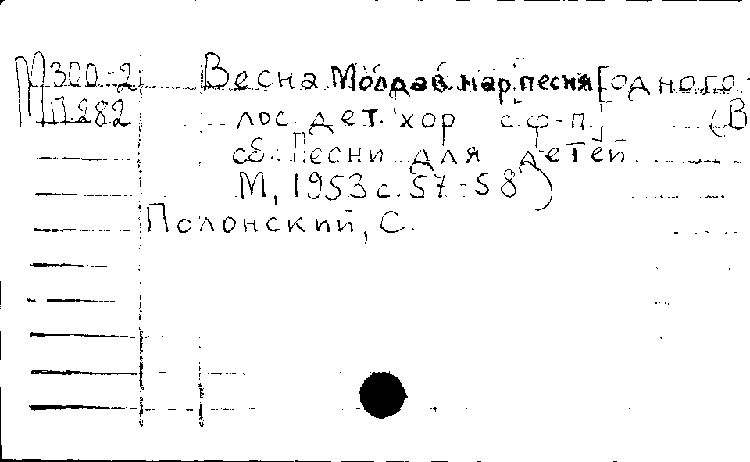 М300-2 Весна. Молдав. нар. песня [одного-
П282 лос. дет. хор с ф-п.] (В
сб.: Песни для детей.
М., 1953 с. 57-58)
Полонский, С.